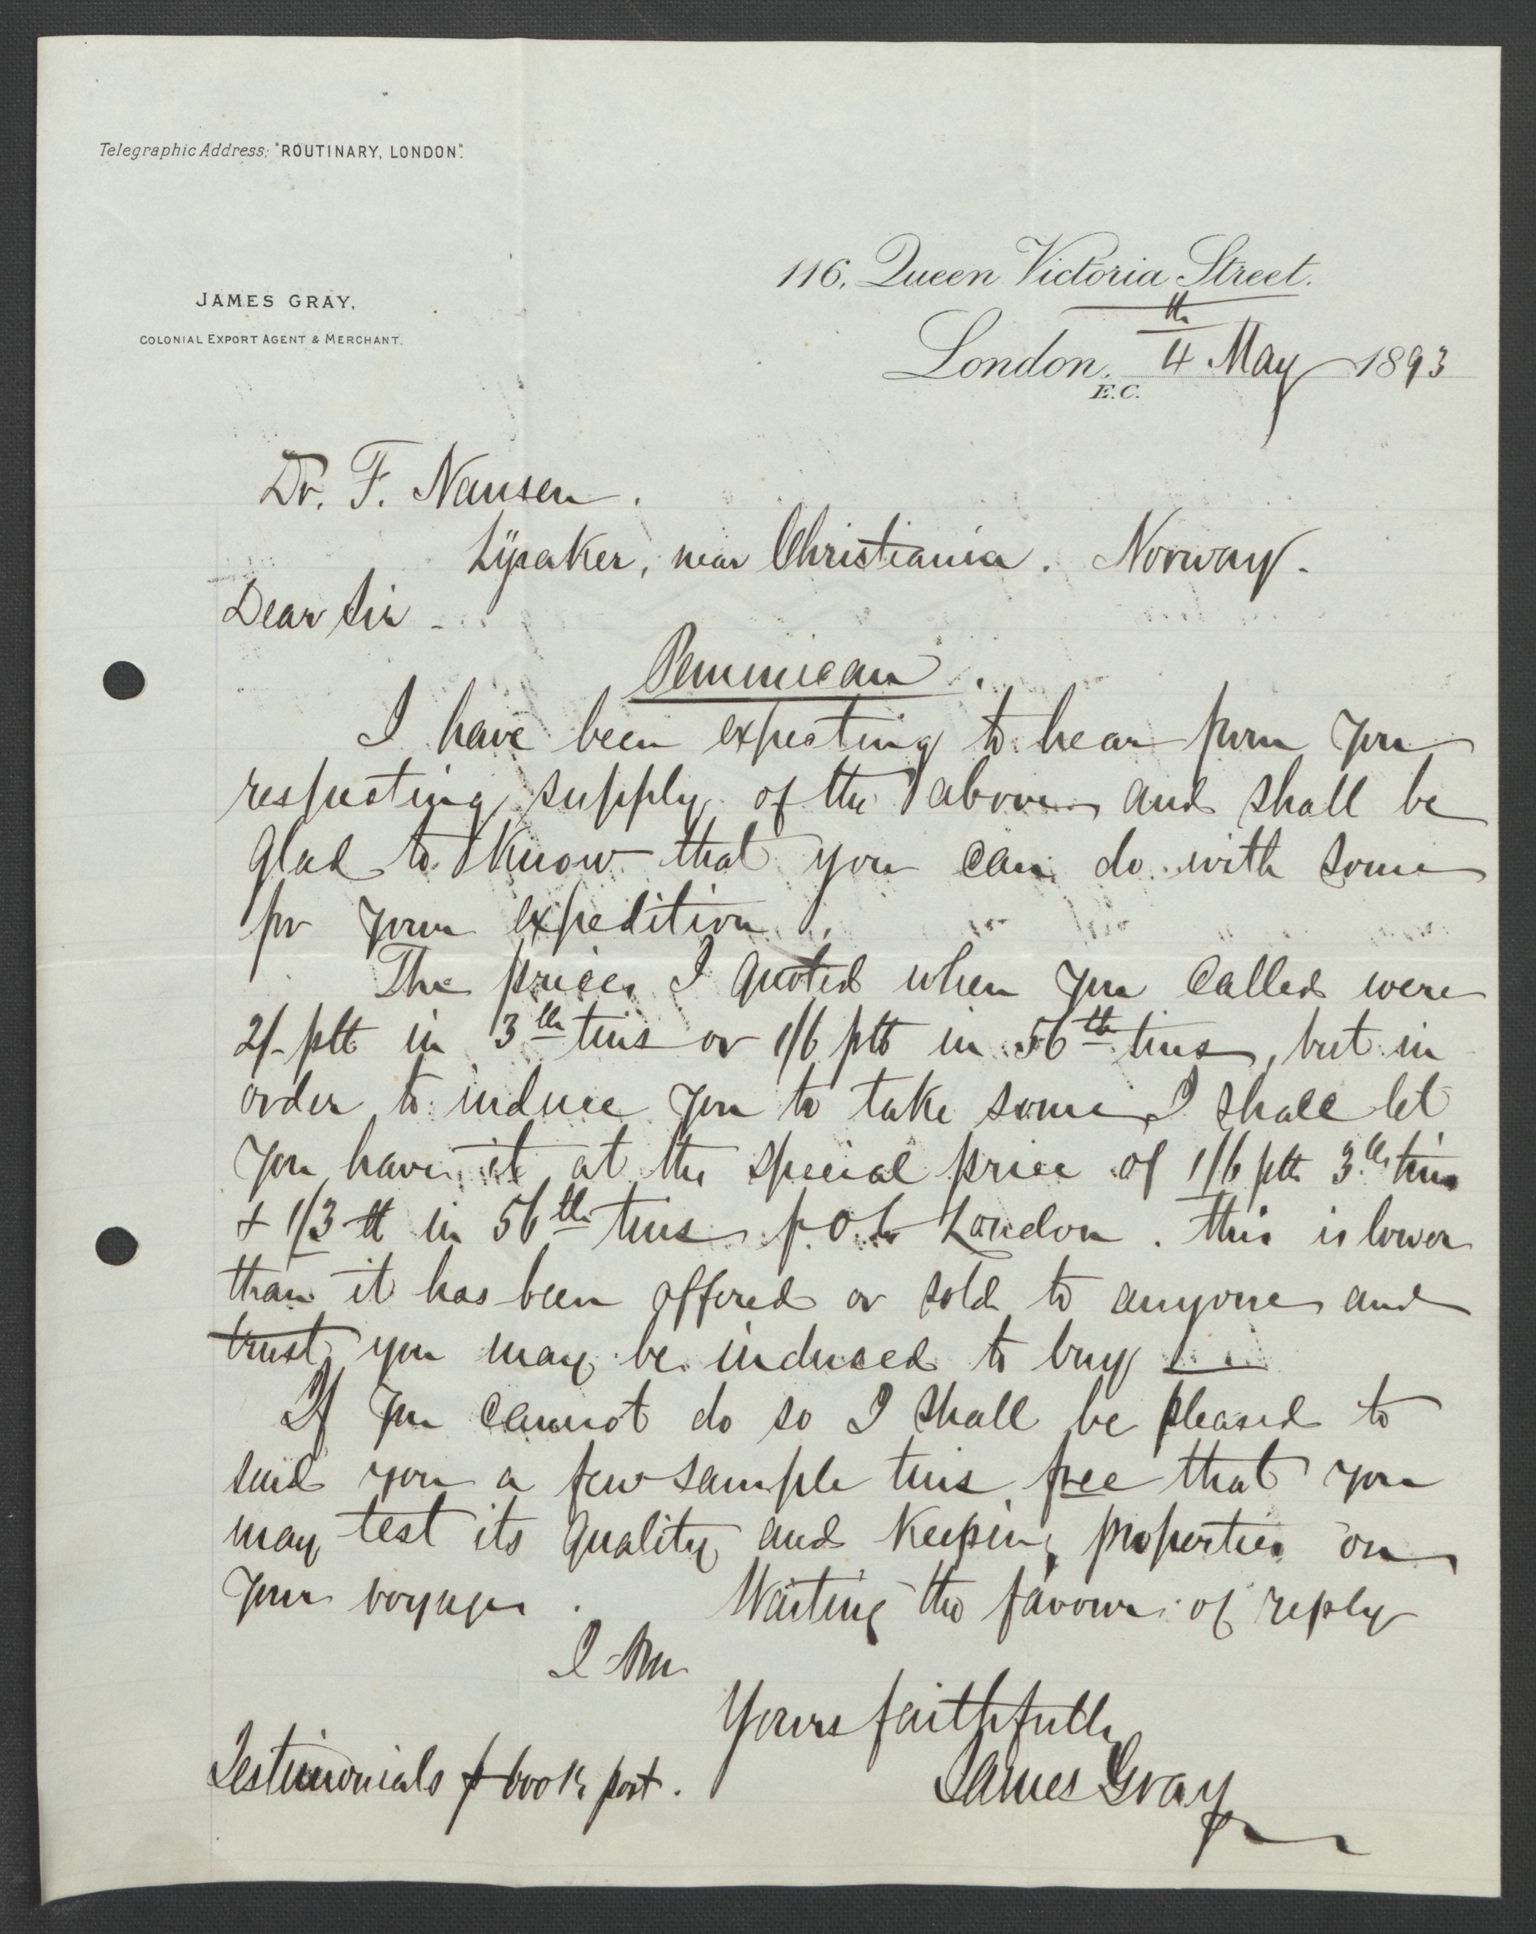 Telegraphic Address; "ROUTINARY, LONDON".
116, Queen Victoria Street.
JAMES GRAY,
COLONIAL EXPORT AGENT & MERCHANT.
London, 4th May 1893
E.C.
Dr. F. Nansen.
Lysaker, near Christiania. Norway.
Dear Sir -
Pemmican.
I have been expecting to hear from you
respecting supply of the above and shall be
glad to know that you can do with some
for your expedition.
The prices I quoted when you called were
2/- p lb in 3 lb tins or 1/6 p lb in 56 lb tins, but in
order to induce you to take some I shall let
you have it at the special price of 1/6 p lb 3 lb tins
& 1/3 lb in 56 lb tins f.o.b London. this is lower
than it has been offered or sold to anyone and
trust you may be induced to buy —
If you cannot do so I shall be pleased to
send you a few sample tins free that you
may test its quality and keeping properties on
your voyage. Waiting the favour of reply
I am
Yours faithfully
James Gray
Testimonials p book post.